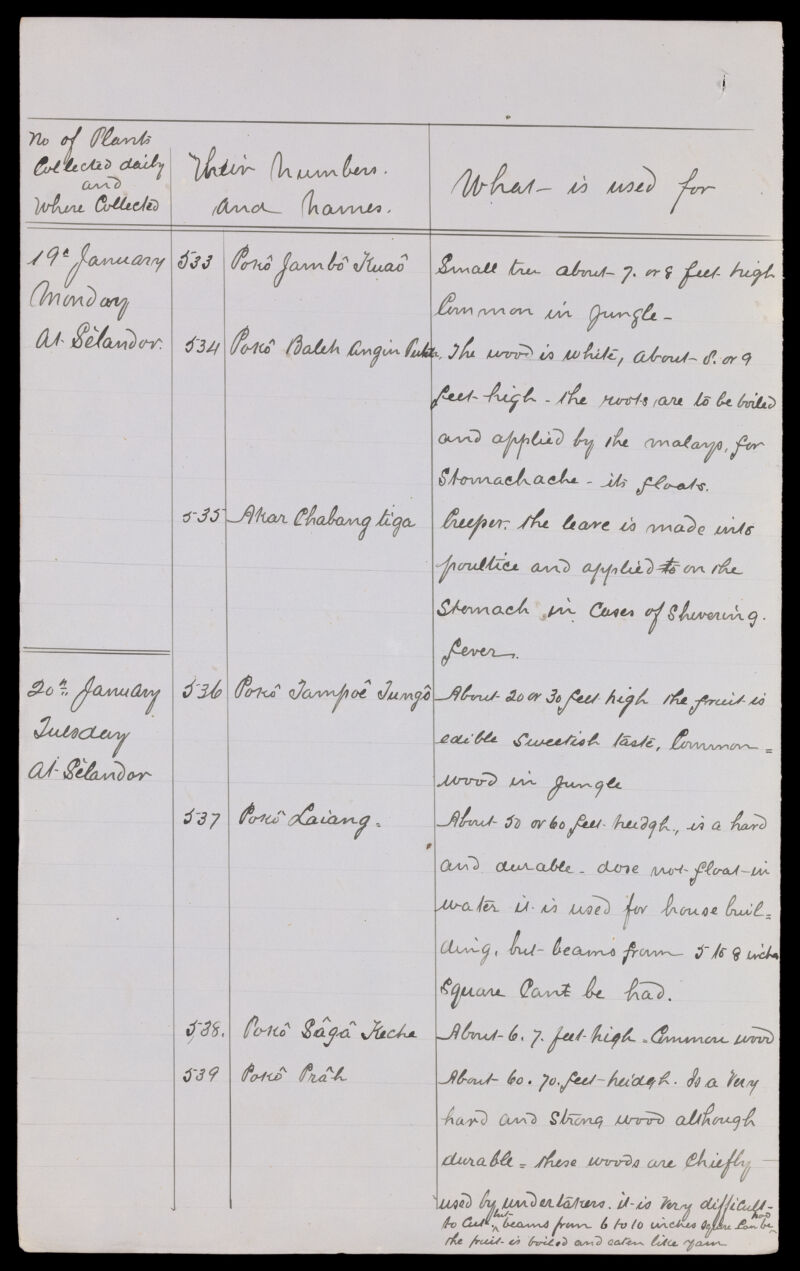 No of Plants
Collected daily
and
Where Collected
Their Numbers.
and Names.
What is used for
19th January
Monday
At Sêlandor.
533 Pokô Jambô Kuaô
Small tree about 7. or 8 feet high
Common in Jungle -
534 Pokô Baleh Angin
The wood is white, about 8. or 9
feet high - the roots are to be boiled
and applied by the malays, for
Stomachache - its floats.
535 Akar Chabang tiga
Creeper. the leave is made into
poultice and applied to on the
Stomach in Cases of Shivering.
fever.
20th January
Tuesday
At Sêlandor
536 Pokô Tampoê Tungô
About 20 or 30 feet high the fruit is
edible Sweetish taste, Common =
wood in Jungle
537 Pokô Laiang.
About 50 or 60 feet heidgh, is a hard
and durable - dose not float in
water it is used for house buil=
ding, but beams from 5 to 8 inches
Square Cant be had.
538. Pokô Sâgâ Keche
About 6. 7. feet high - Common wood
539 Pokô Prâh
About 60. 70. feet heidgh. Is a Very
hard and Strong wood although
durable = these woods are Chiefly
used by undertakers. it is Very difficult
to Cut but beams from 6 to 10 inches square Can be had
the fruit is boiled and eaten like yam